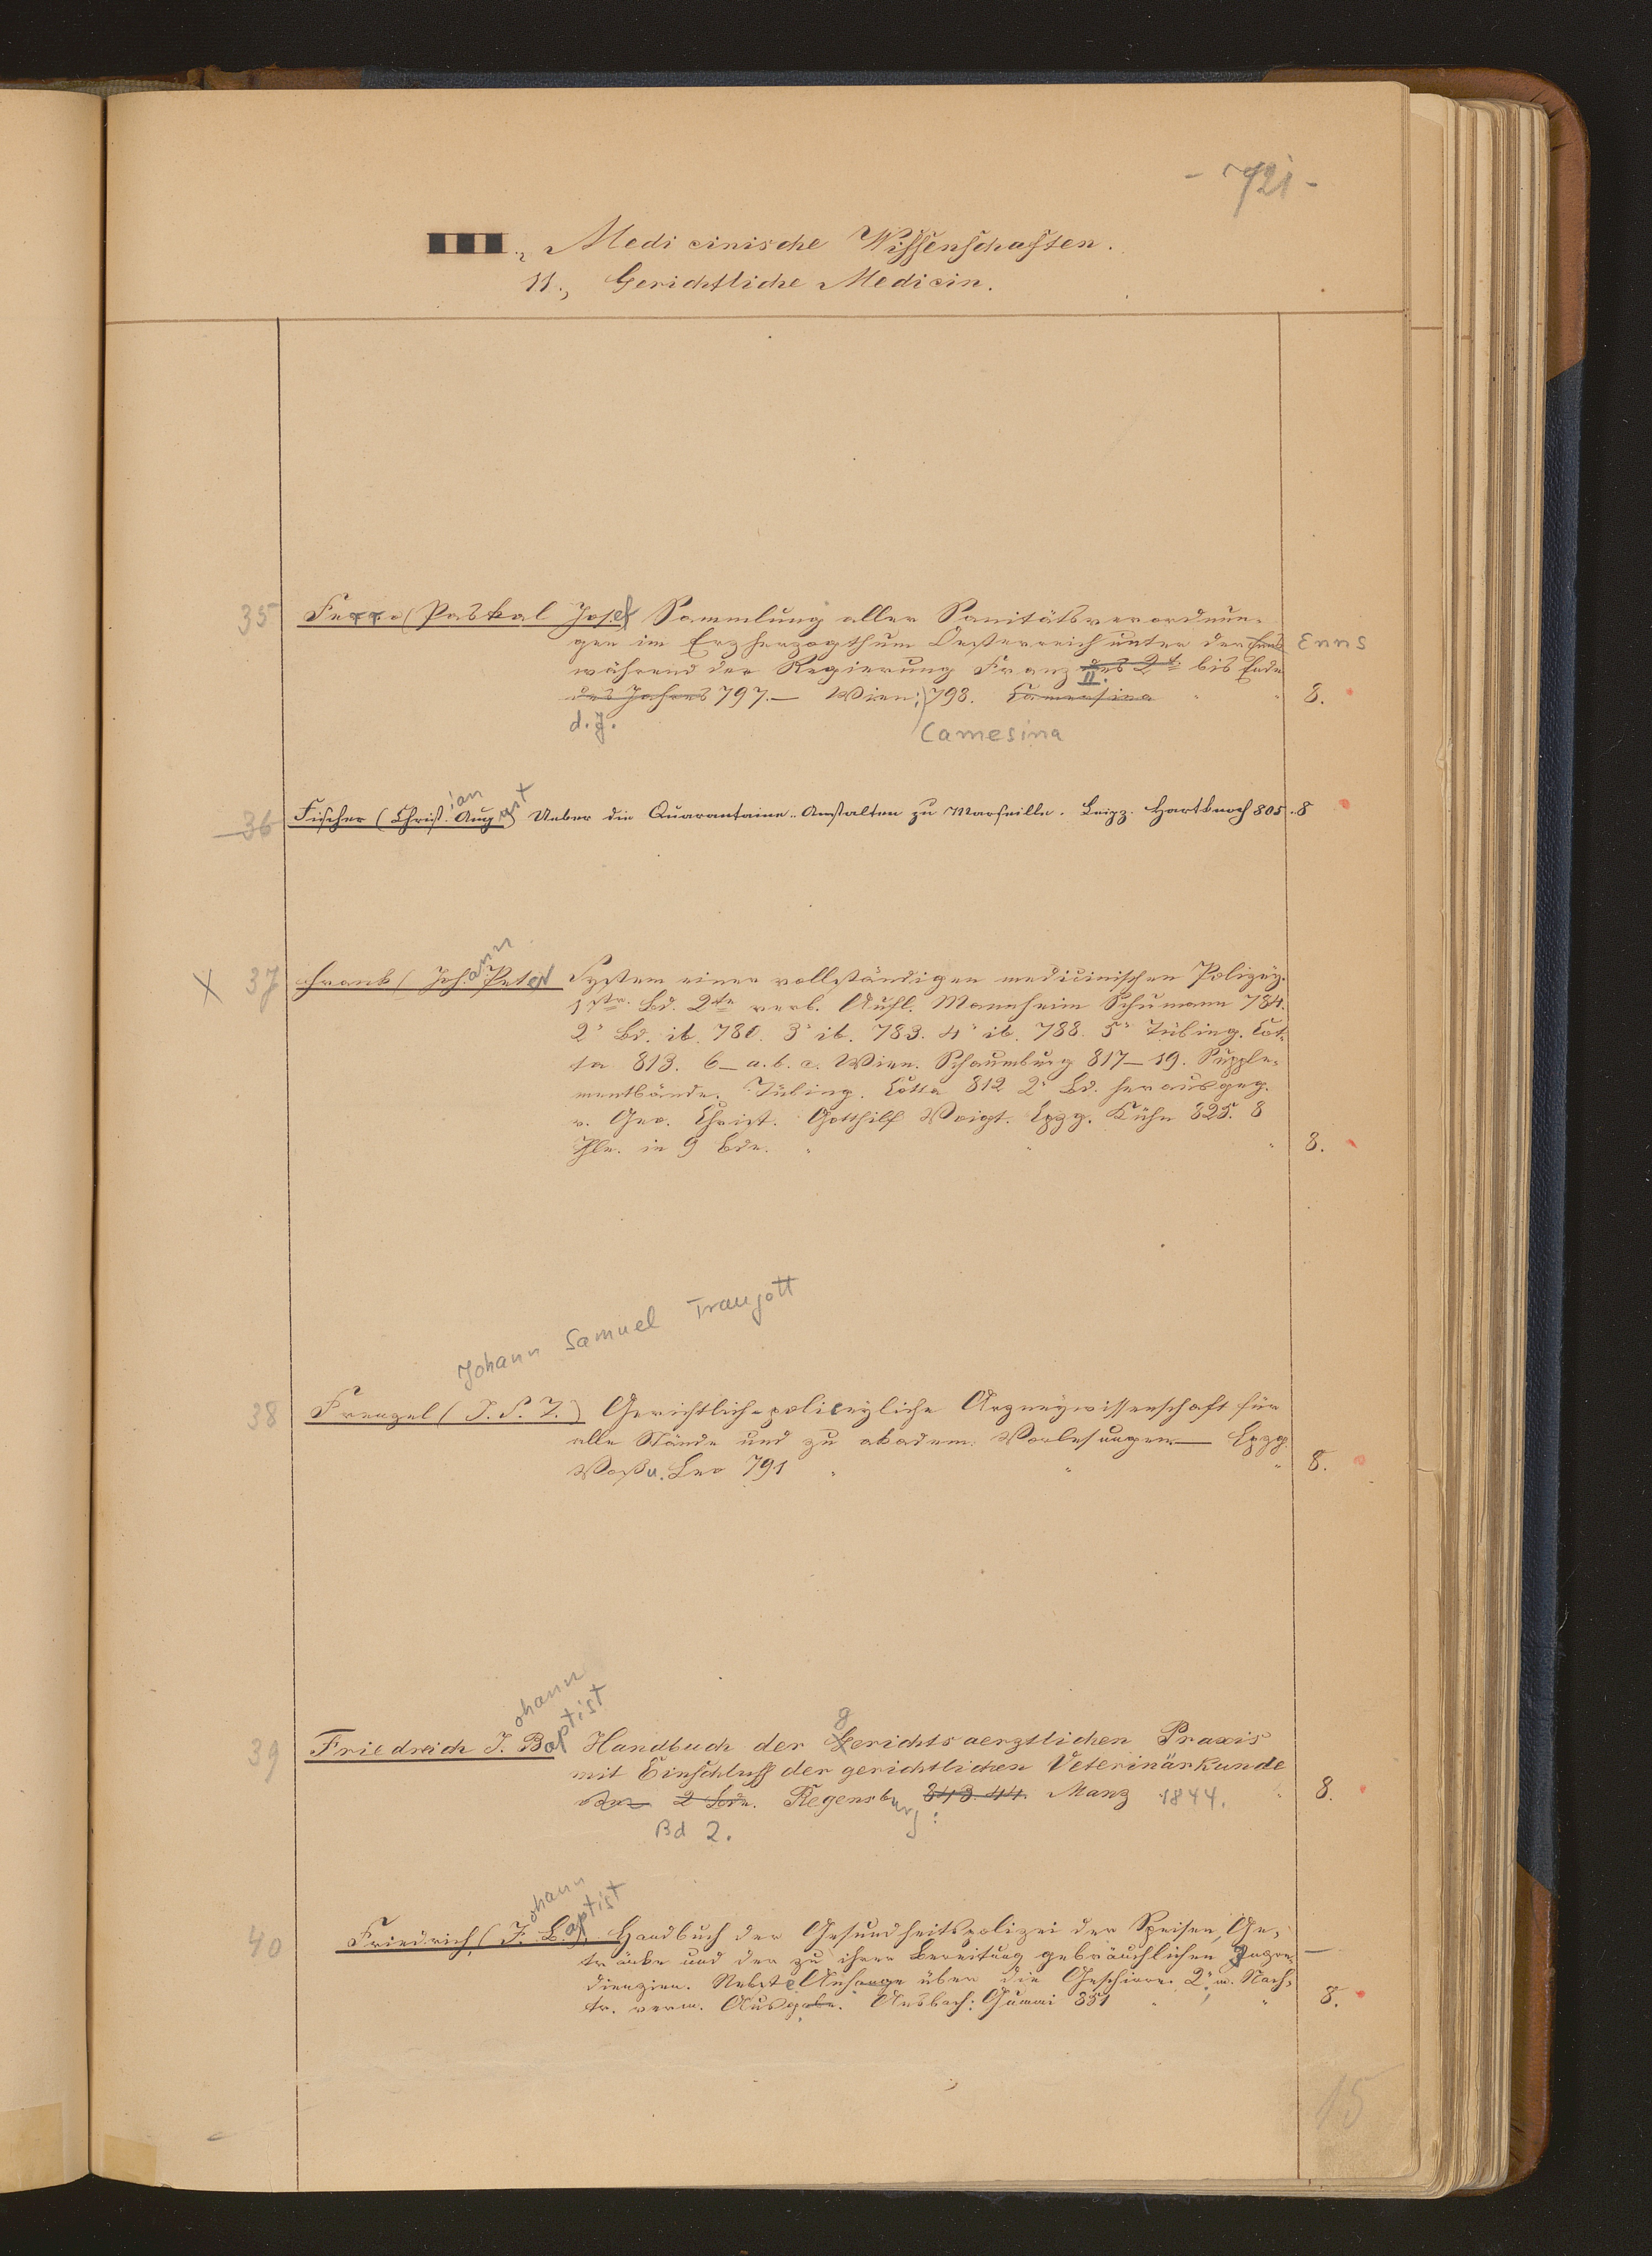 - 721 -
III., Medicinische Wissenschaften.
11., Gerichtliche Medicin.
35 Ferro (Paskal Josef Sammlung aller Sanitätsverordnun-
gen im Erzherzogthum Oesterreich unter der Enns Enns
während der Regierung Franz des 2t II. bis Ende
des Jahres 797.— Wien: 798. Camesina " " 8.
d. J. Camesina
ian ust
36 Fischer (Christ. Aug Ueber die Quarantaine-Anstalten zu Marseille. Leipz. Hartknoch 805. 8
ann
X 37 Frank (Joh. Peter System einer vollständigen medicinischen Polizey.
1str Bd. 2te verb. Aufl. Mannheim Schumann 784.
2r Bd. ib. 780. 3r ib. 783. 4r ib. 788. 5r Tübing. Cot-
ta 813. 6— a. b. c. Wien. Schaumburg 817—19. Supple-
mentbände. Tübing. Cotta 812 2r Bd. herausgeg.
v. Geo. Christ. Gotthilf Voigt. Lpzg. Kühn 825. 8
Thle. in 9 Bdn. " " " 8.
Johann Samuel Traugott
38 Frenzel (J. S. T.) Gerichtlich-policeyliche Arzneywissenschaft für
alle Stände und zu akadem. Vorlesungen— Lpzg.
Voß u. Leo 791 " " " 8.
ohann
aptist
39 Friedreich J. Bapt Handbuch der gerichtsaerztlichen Praxis
mit Einschluss der gerichtlichen Veterinärkunde
2 Bde. Regensburg: 843.44. Manz 1844. " 8.
Bd 2.
ohann
aptist
40 Friedrich (J. B.) Handbuch der Gesundheitspolizei der Speisen, Ge-
tränke und der zu ihrer Bereitung gebräuchlichen Ingre- —
dienzien. Nebst e Anhange über die Geschirre. 2. m. Nach-
tr. verm. Ausgabe. Ansbach: Gummi 851 " " 8.
15